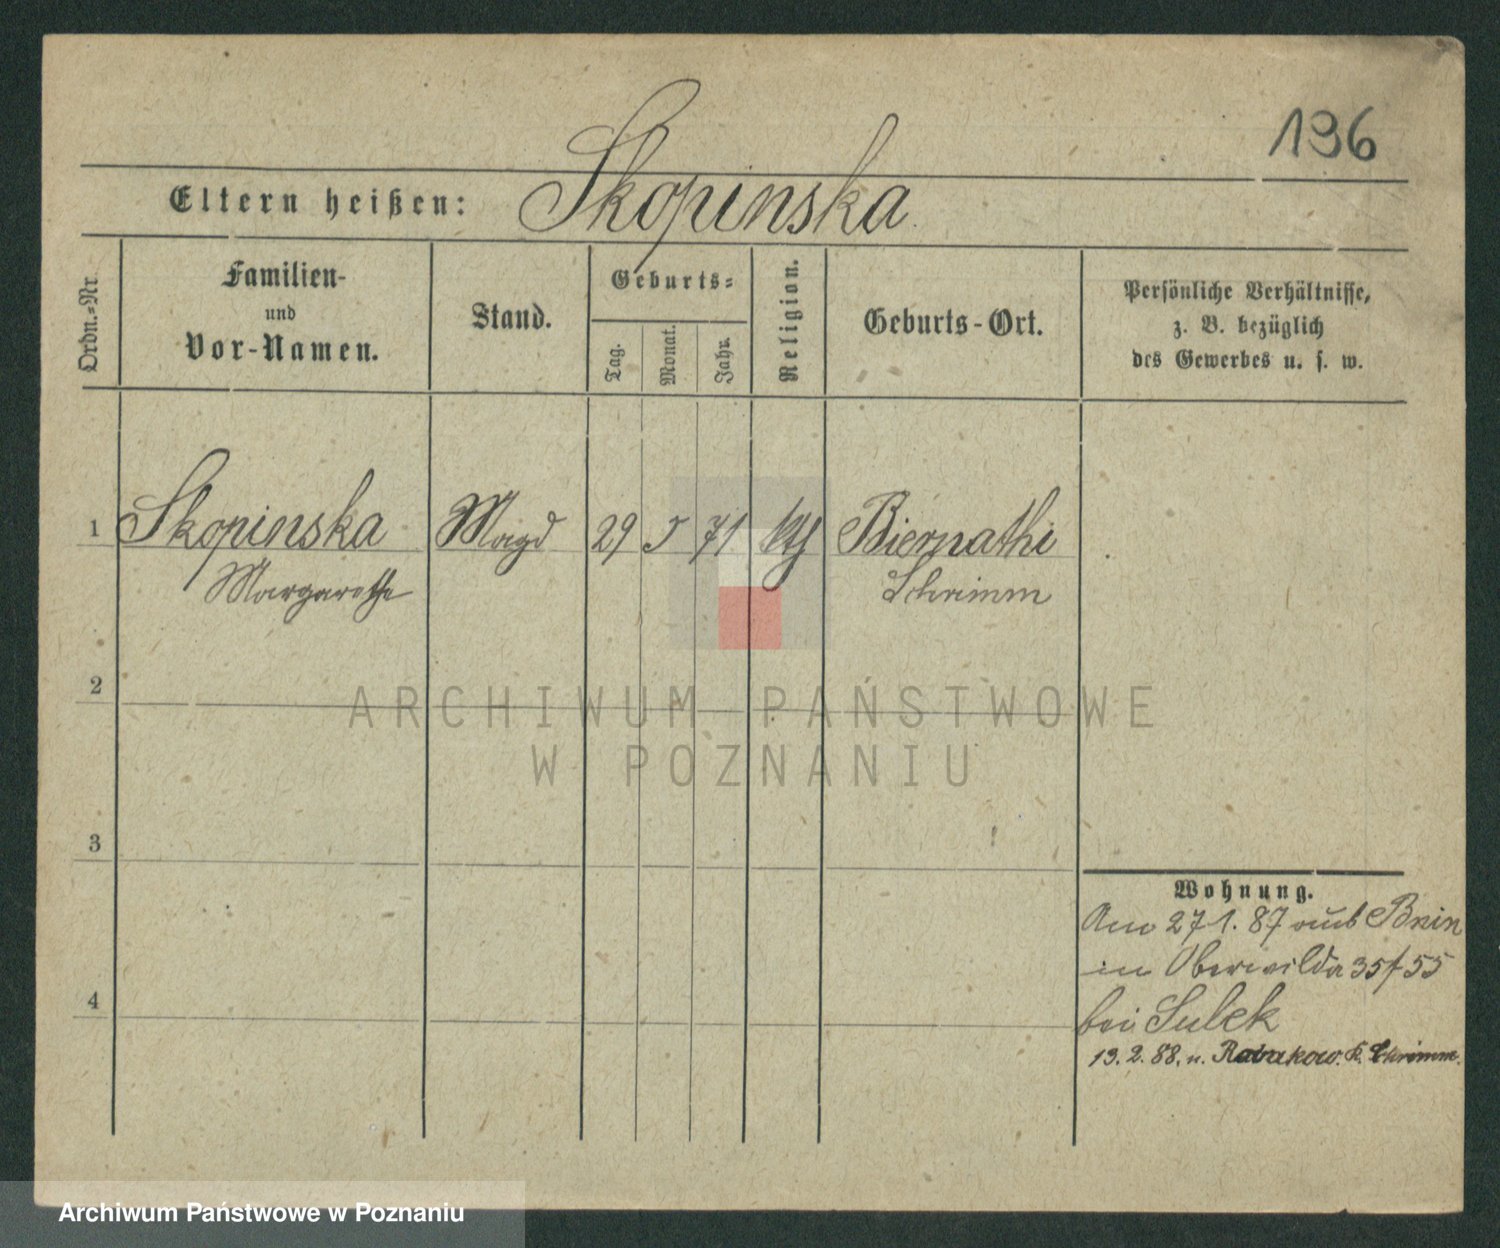 196
Eltern heißen: Skopinska
Ordn.-Nr.
Familien-
und
Vor-Namen.
Stand.
Geburts-
Tag.
Monat.
Jahr.
Religion.
Geburts-Ort.
Persönliche Verhältnisse,
z. B. bezüglich
des Gewerbes u. s. w.
1 Skopinska Magd 29 5 71 Biernathi
Margarethe Schrimm
2
ARCHIWUM PAŃSTWOWE
W POZNANIU
3
Wohnung.
Am 27 1. 87 aus Bnin
in Oberwilda 35/55
4
bei Sulek
13. 2. 88. n. K. Schrimm.
Archiwum Państwowe w Poznaniu